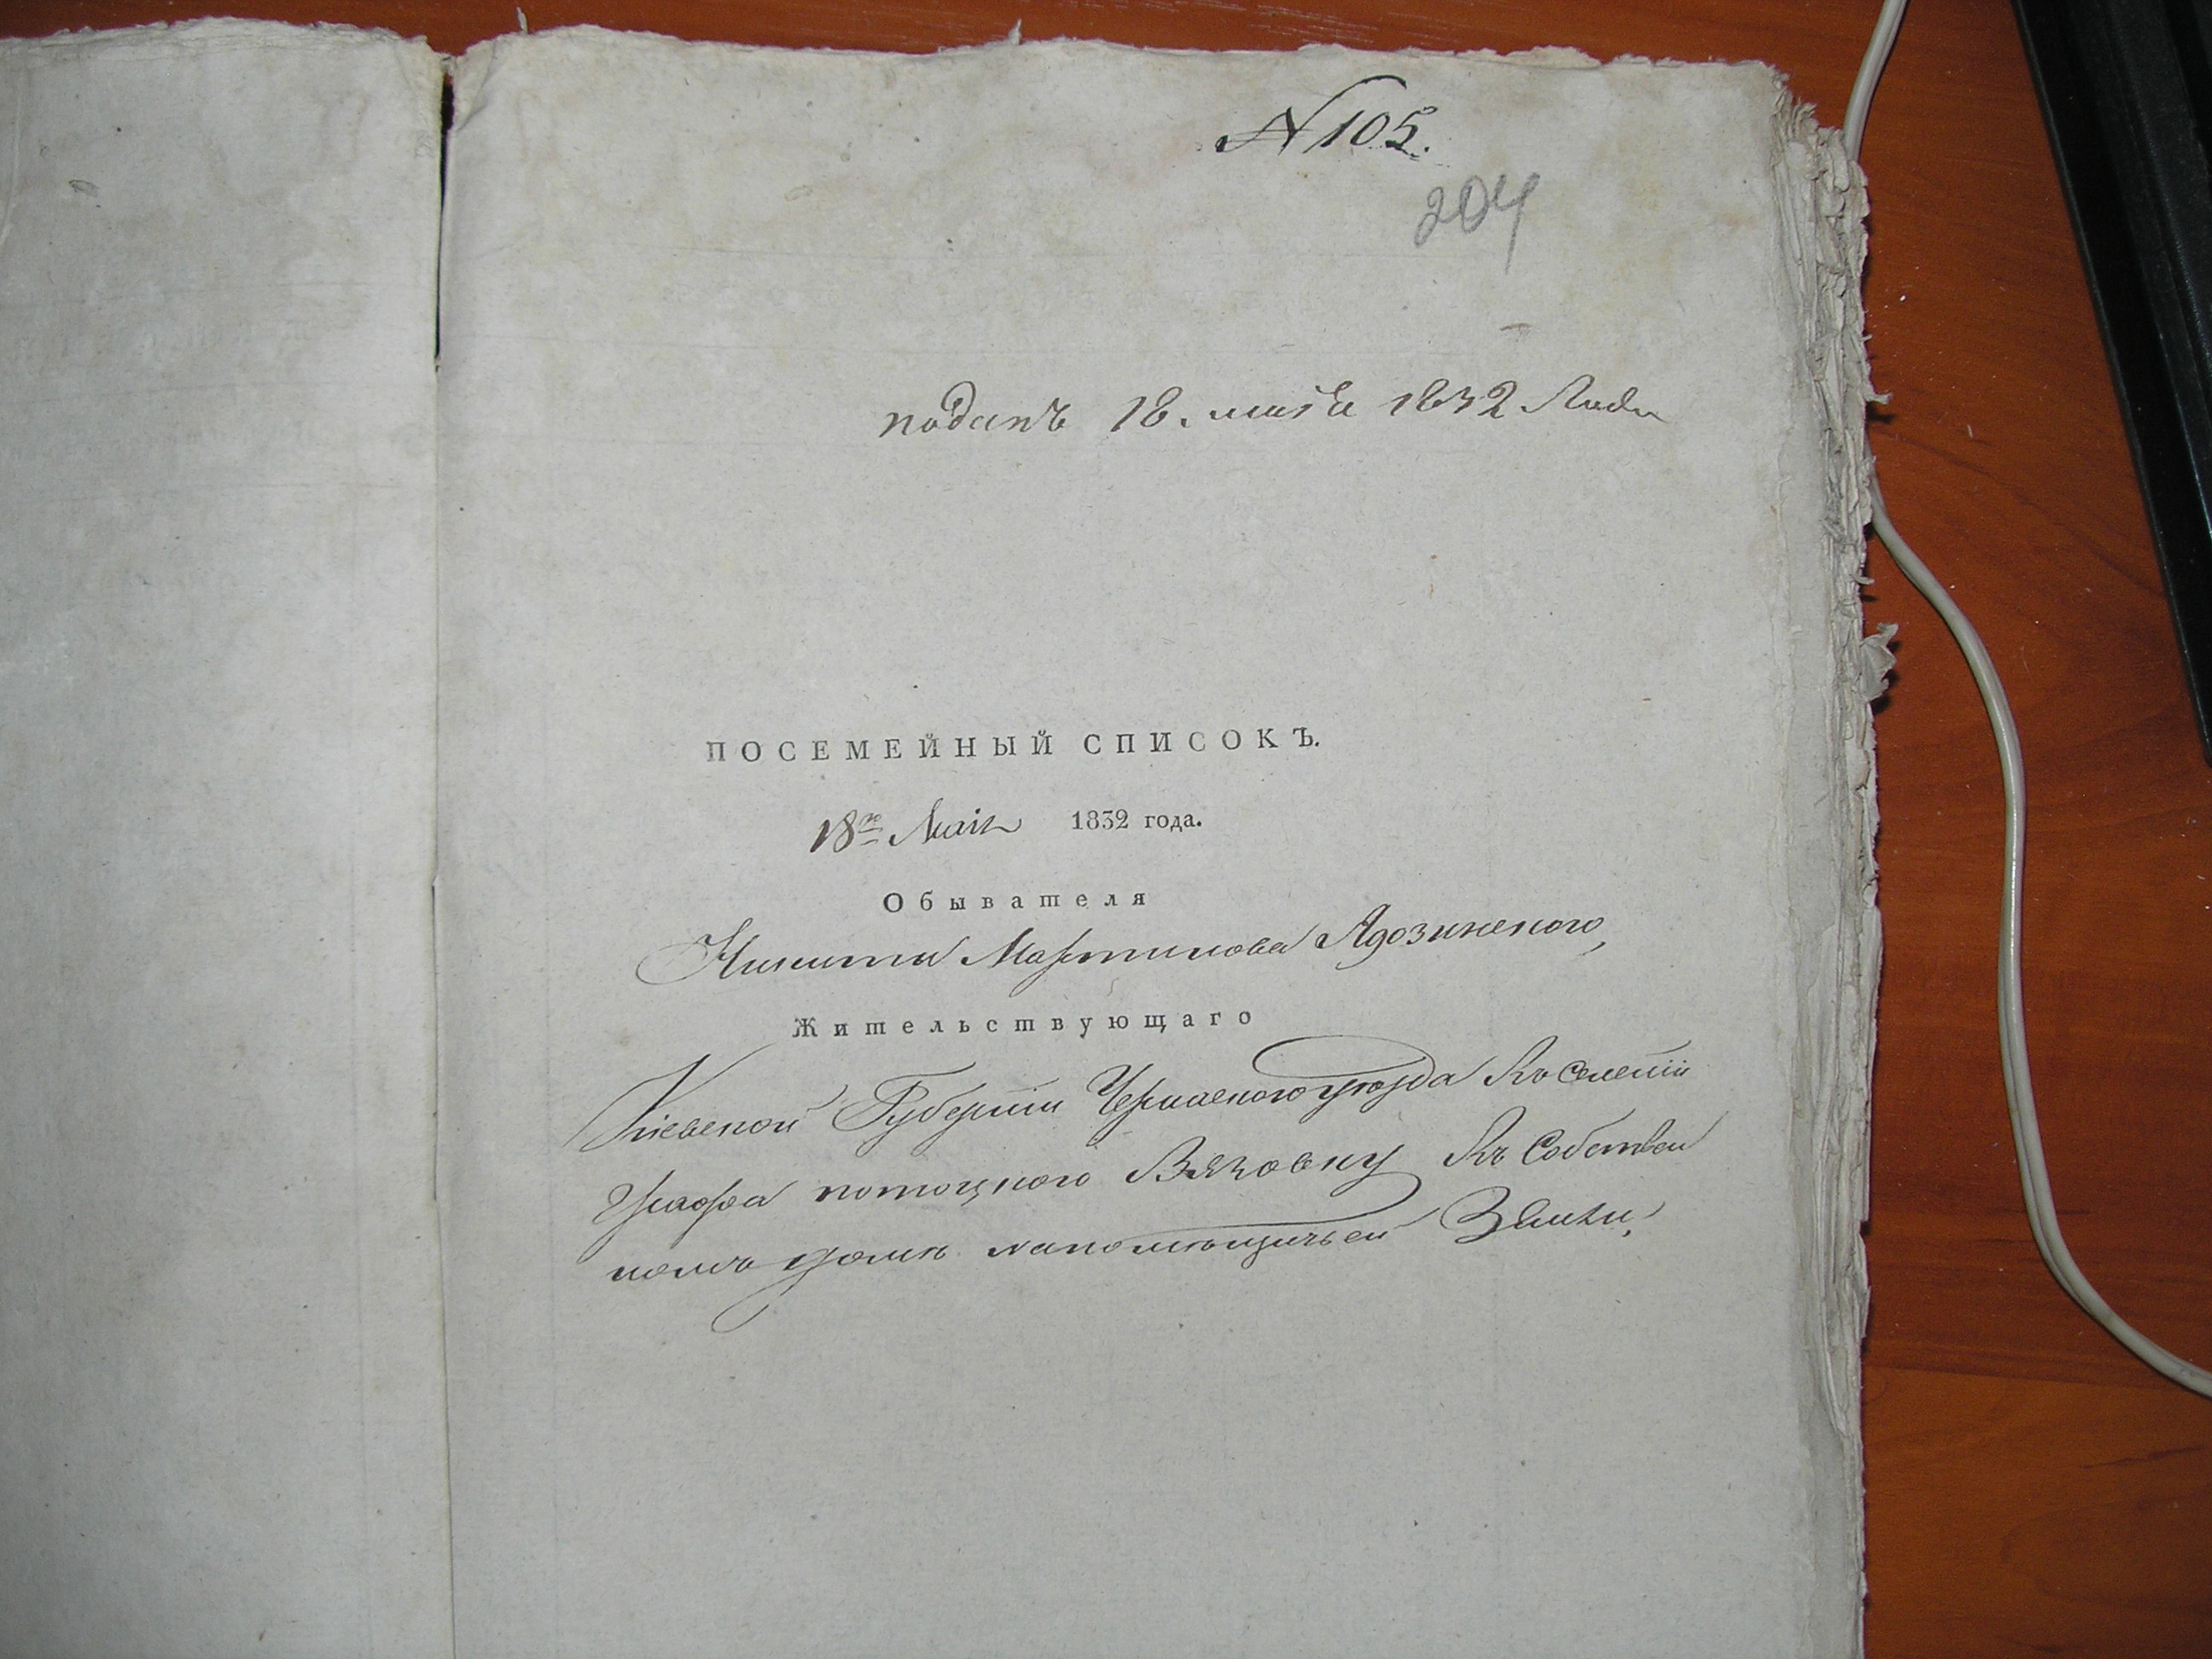 N 105.
204
поданъ 18. маія 1832 Года
ПОСЕМЕЙНЫЙ СПИСОКЪ.
18го Маія 1832 года.
Обывателя
Никиты Мартинова
Жительствующаго
Кіевской Губерніи Черкаскаго уезда Въ Селеніи
Графа потоцкого Вязовку Въ Собствен
номъ доме напомещичьей Земли,